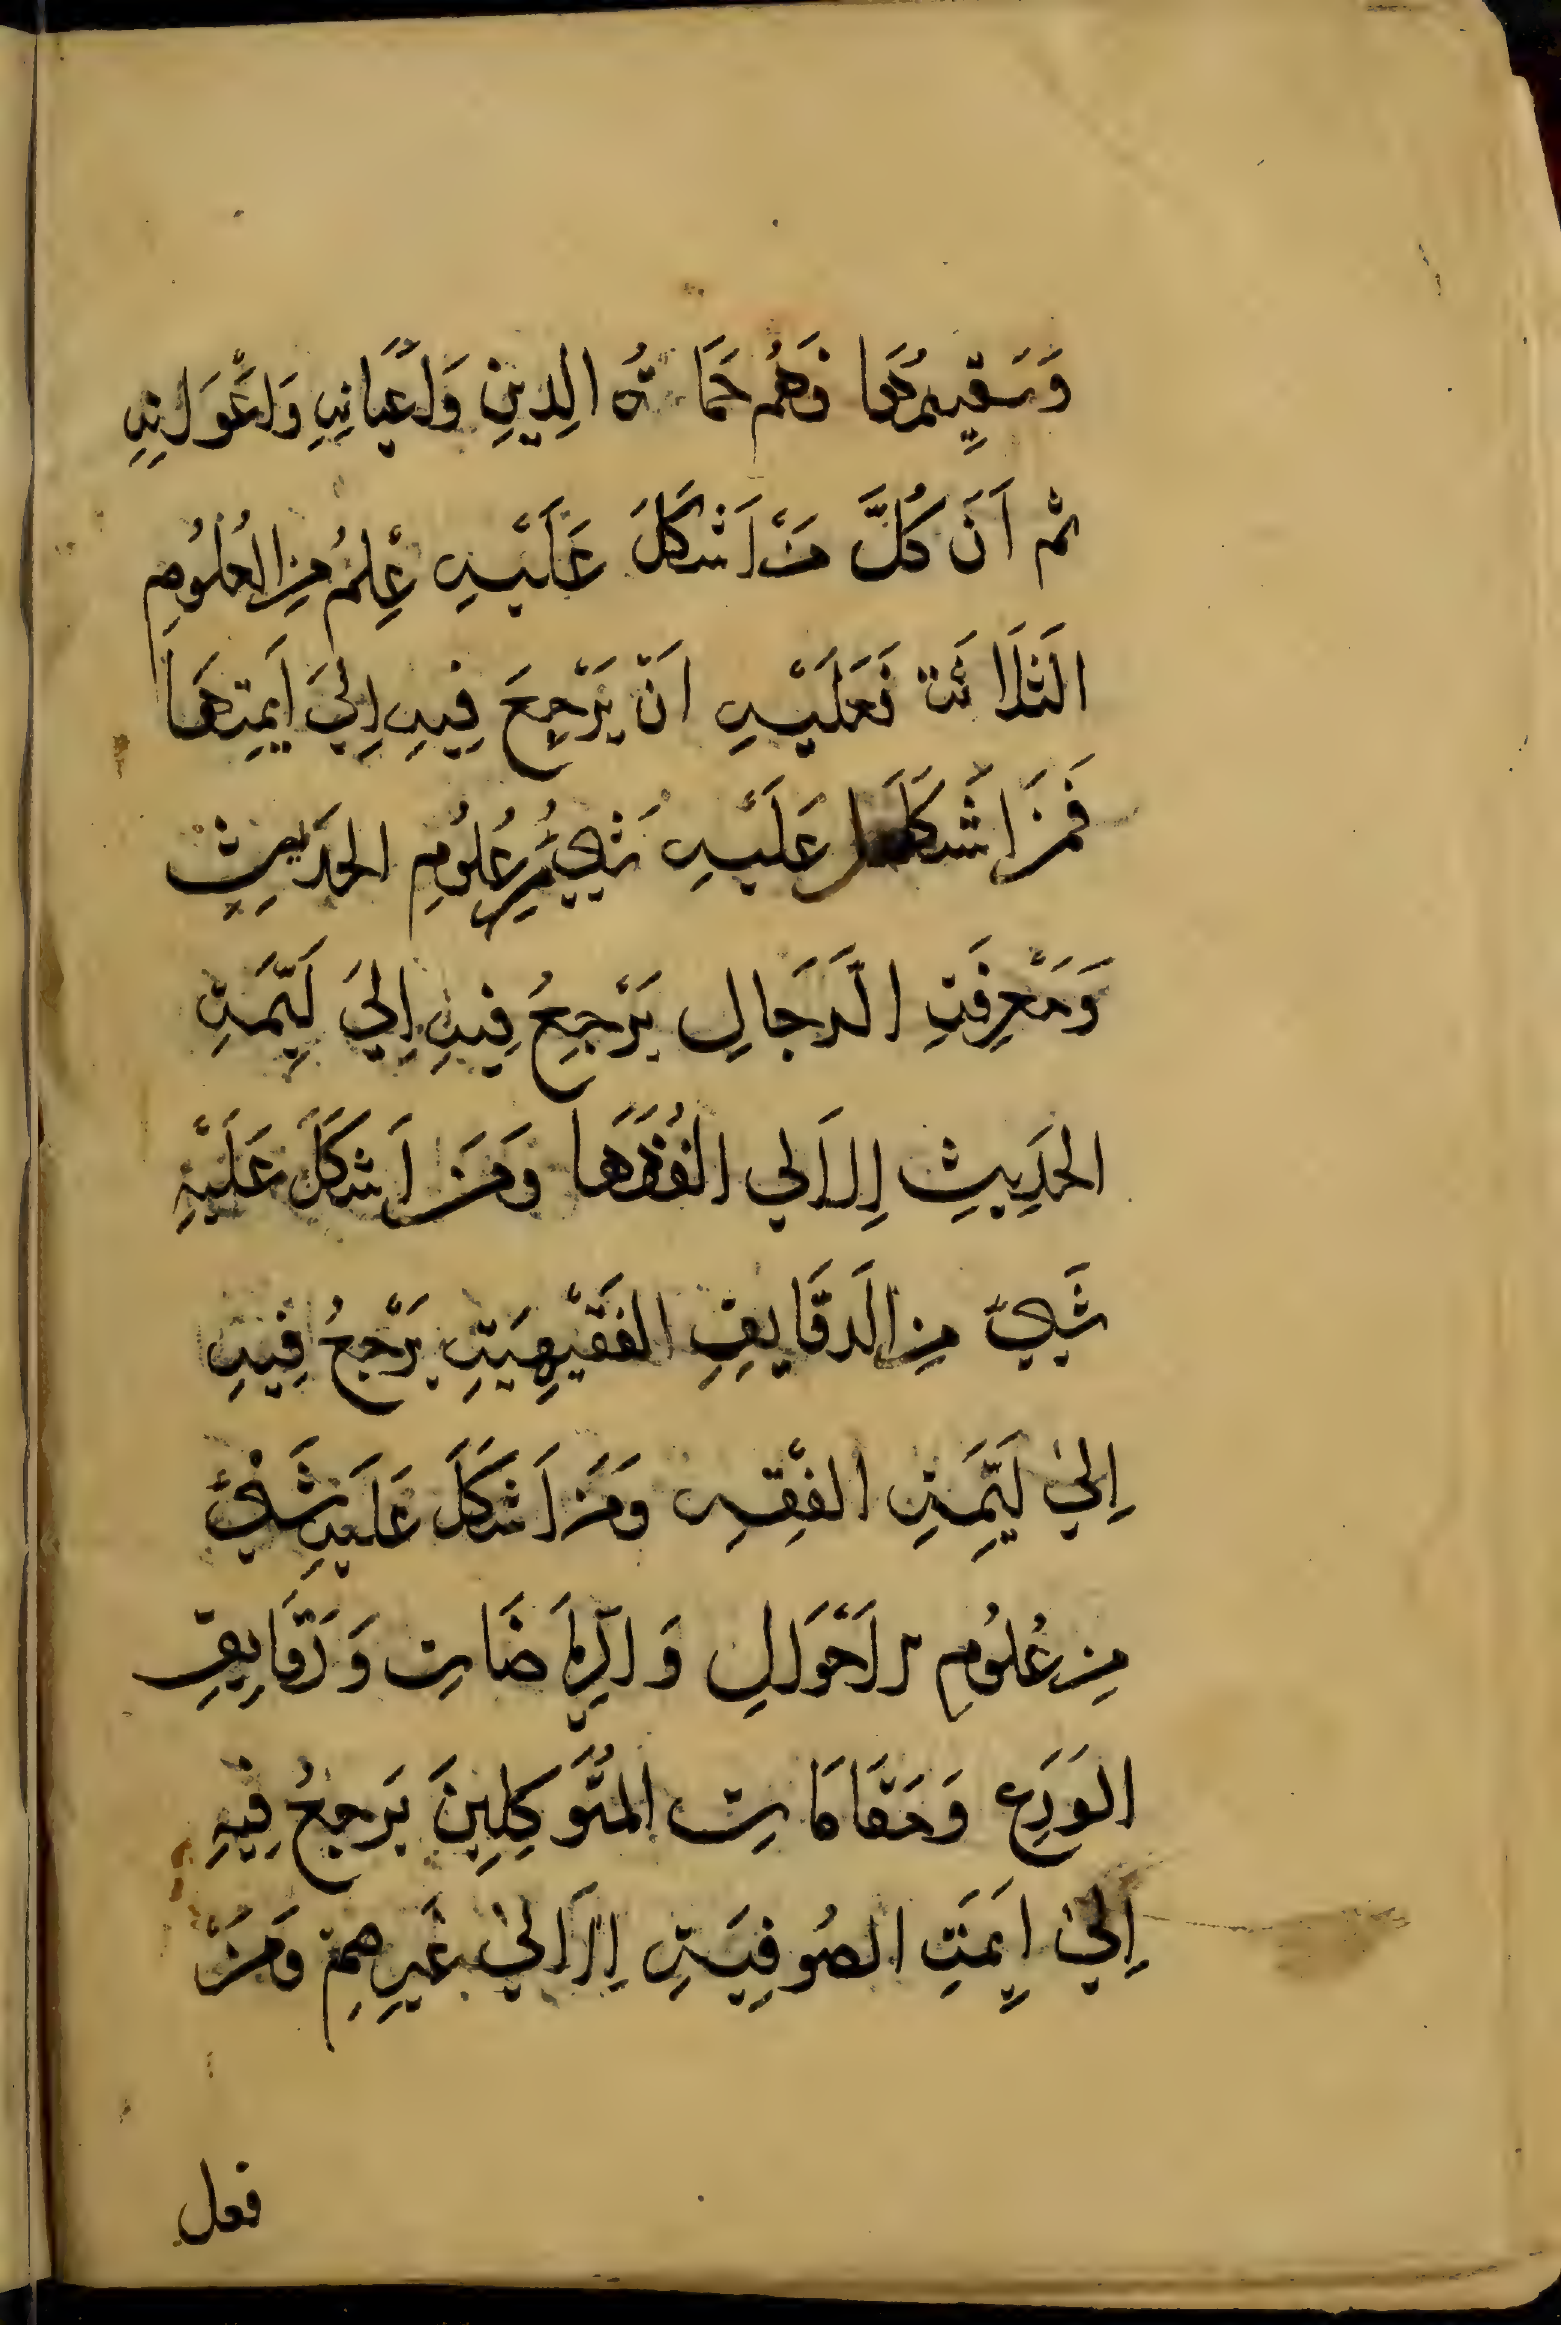 وَسَقِيمُهَا فَهُم حَمَاتُهُ الدِينِ وَاَعْيَانِهِ وَاَعْوَانِهِ
ثم اَنَ كُلَّ مَنْ اَشكَلَ عَلَيْهِ عِلمُ مِنَ العُلُومِ
الثَلَاثَة فَعَلَيْهِ اَنْ يَرْجِعَ فِيهِ اِلَيَ اَيِمَتِهَا
فَمَن اَشكَلَ عَلَيْهِ شَيٌ مِن عُلُومِ الحَدِيثِ
وَمَعْرِفَتِ الرَجَالِ يَرْجِعُ فِيهِ اِلَيَ اَيِمَتِ
الحَدِيثِ لا اِلَي الفُقَهَا وَمَن اَشكَلَ عَلَيْهِ
شَيٌ مِن الدَقَايِقِ الفَقْيهِيَتِ يَرْجِعُ فِيهِ
اِلَيٰ اَيِمَتِ الفِقْهِ وَمَن اَشكَلَ عَلَيهِ شَيْءٌ
مِن عُلُومِ الاَحْوَالِ وَالرِيَاضَاتِ وَدَقَايِقِ
الوَرَعِ وَمَقَامَاتِ المُتَوَكِلِينَ يَرجِعُ فِيهِ
اِلَيٰ اَيِمَتِ الصُوفِيَةِ لا اِلَيٰ غَيرِهِمْ وَمَنْ
فعل